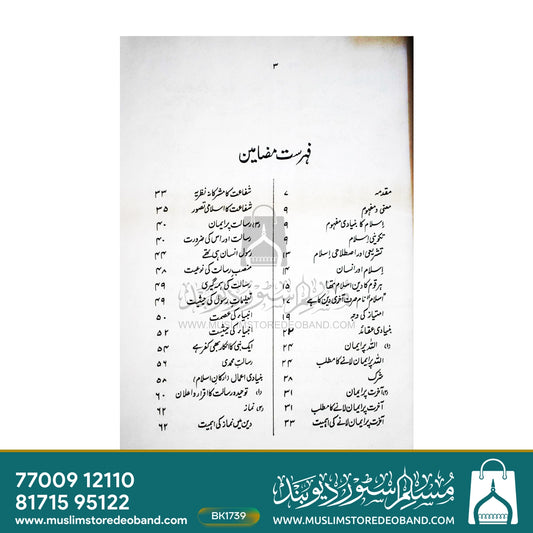 ۳
فہرست مضامین
مقدمہ ۷
معنی و مفہوم ۹
اسلام کا بنیادی مفہوم ۹
تکوینی اسلام ۹
تشریعی اور اصطلاحی اسلام ۱۳
اسلام اور انسان ۱۴
ہر قوم کا دین اسلام تھا ۱۵
"اسلام" نام صرف آخری دین کا ہے
امتیاز کی وجہ ۱۹
بنیادی عقائد ۲۳
(۱) اللہ پر ایمان ۲۴
اللہ پر ایمان لانے کا مطلب ۲۴
شرک ۲۸
(۲) آخرت پر ایمان ۳۱
آخرت پر ایمان لانے کا مطلب ۳۱
آخرت پر ایمان لانے کی اہمیت ۳۳
شفاعت کا مشرکانہ نظریہ ۳۳
شفاعت کا اسلامی تصور ۳۵
(۳) رسالت پر ایمان ۴۰
رسالت اور اس کی ضرورت ۴۰
رسول انسان ہی تھے ۴۴
منصب رسالت کی نوعیت ۴۸
رسالت کی ہمہ گیری ۴۹
تعلیمات رسول کی حیثیت ۴۹
انبیاء کی عصمت ۵۰
انبیاء کی حیثیت ۵۲
ایک نبی کا انکار بھی کفر ہے ۵۴
رسالت محمدی ۵۶
بنیادی اعمال (ارکان اسلام) ۵۸
(۱) توحید و رسالت کا اقرار و اعلان ۶۰
(۲) نماز ۶۲
دین میں نماز کی اہمیت ۶۲
مسلم سٹور دیوبند
WWW.MUSLIMSTOREDEOBAND.COM
77009 12110
81715 95122
www.muslimstoredeoband.com
BK1739
مسلم سٹور دیوبند
WWW.MUSLIMSTOREDEOBAND.COM